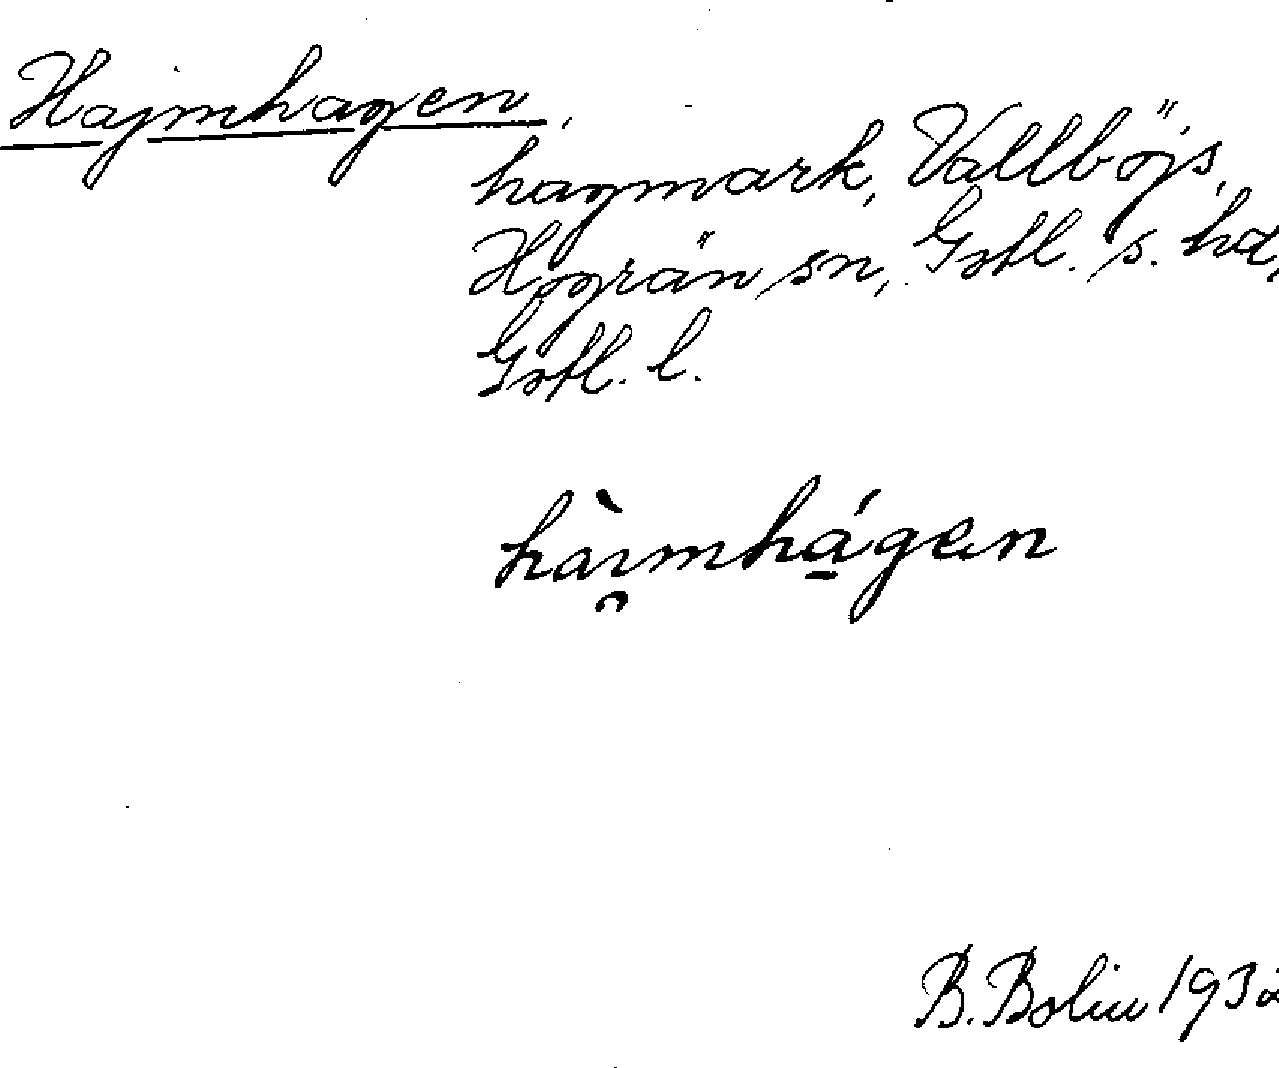 Hajmhagen,
hagmark, Vallböjs,
Hogrän sn, Gotl. s. hd,
Gotl. l.
hàı̯mhá̱gen
B. Bolin 1932